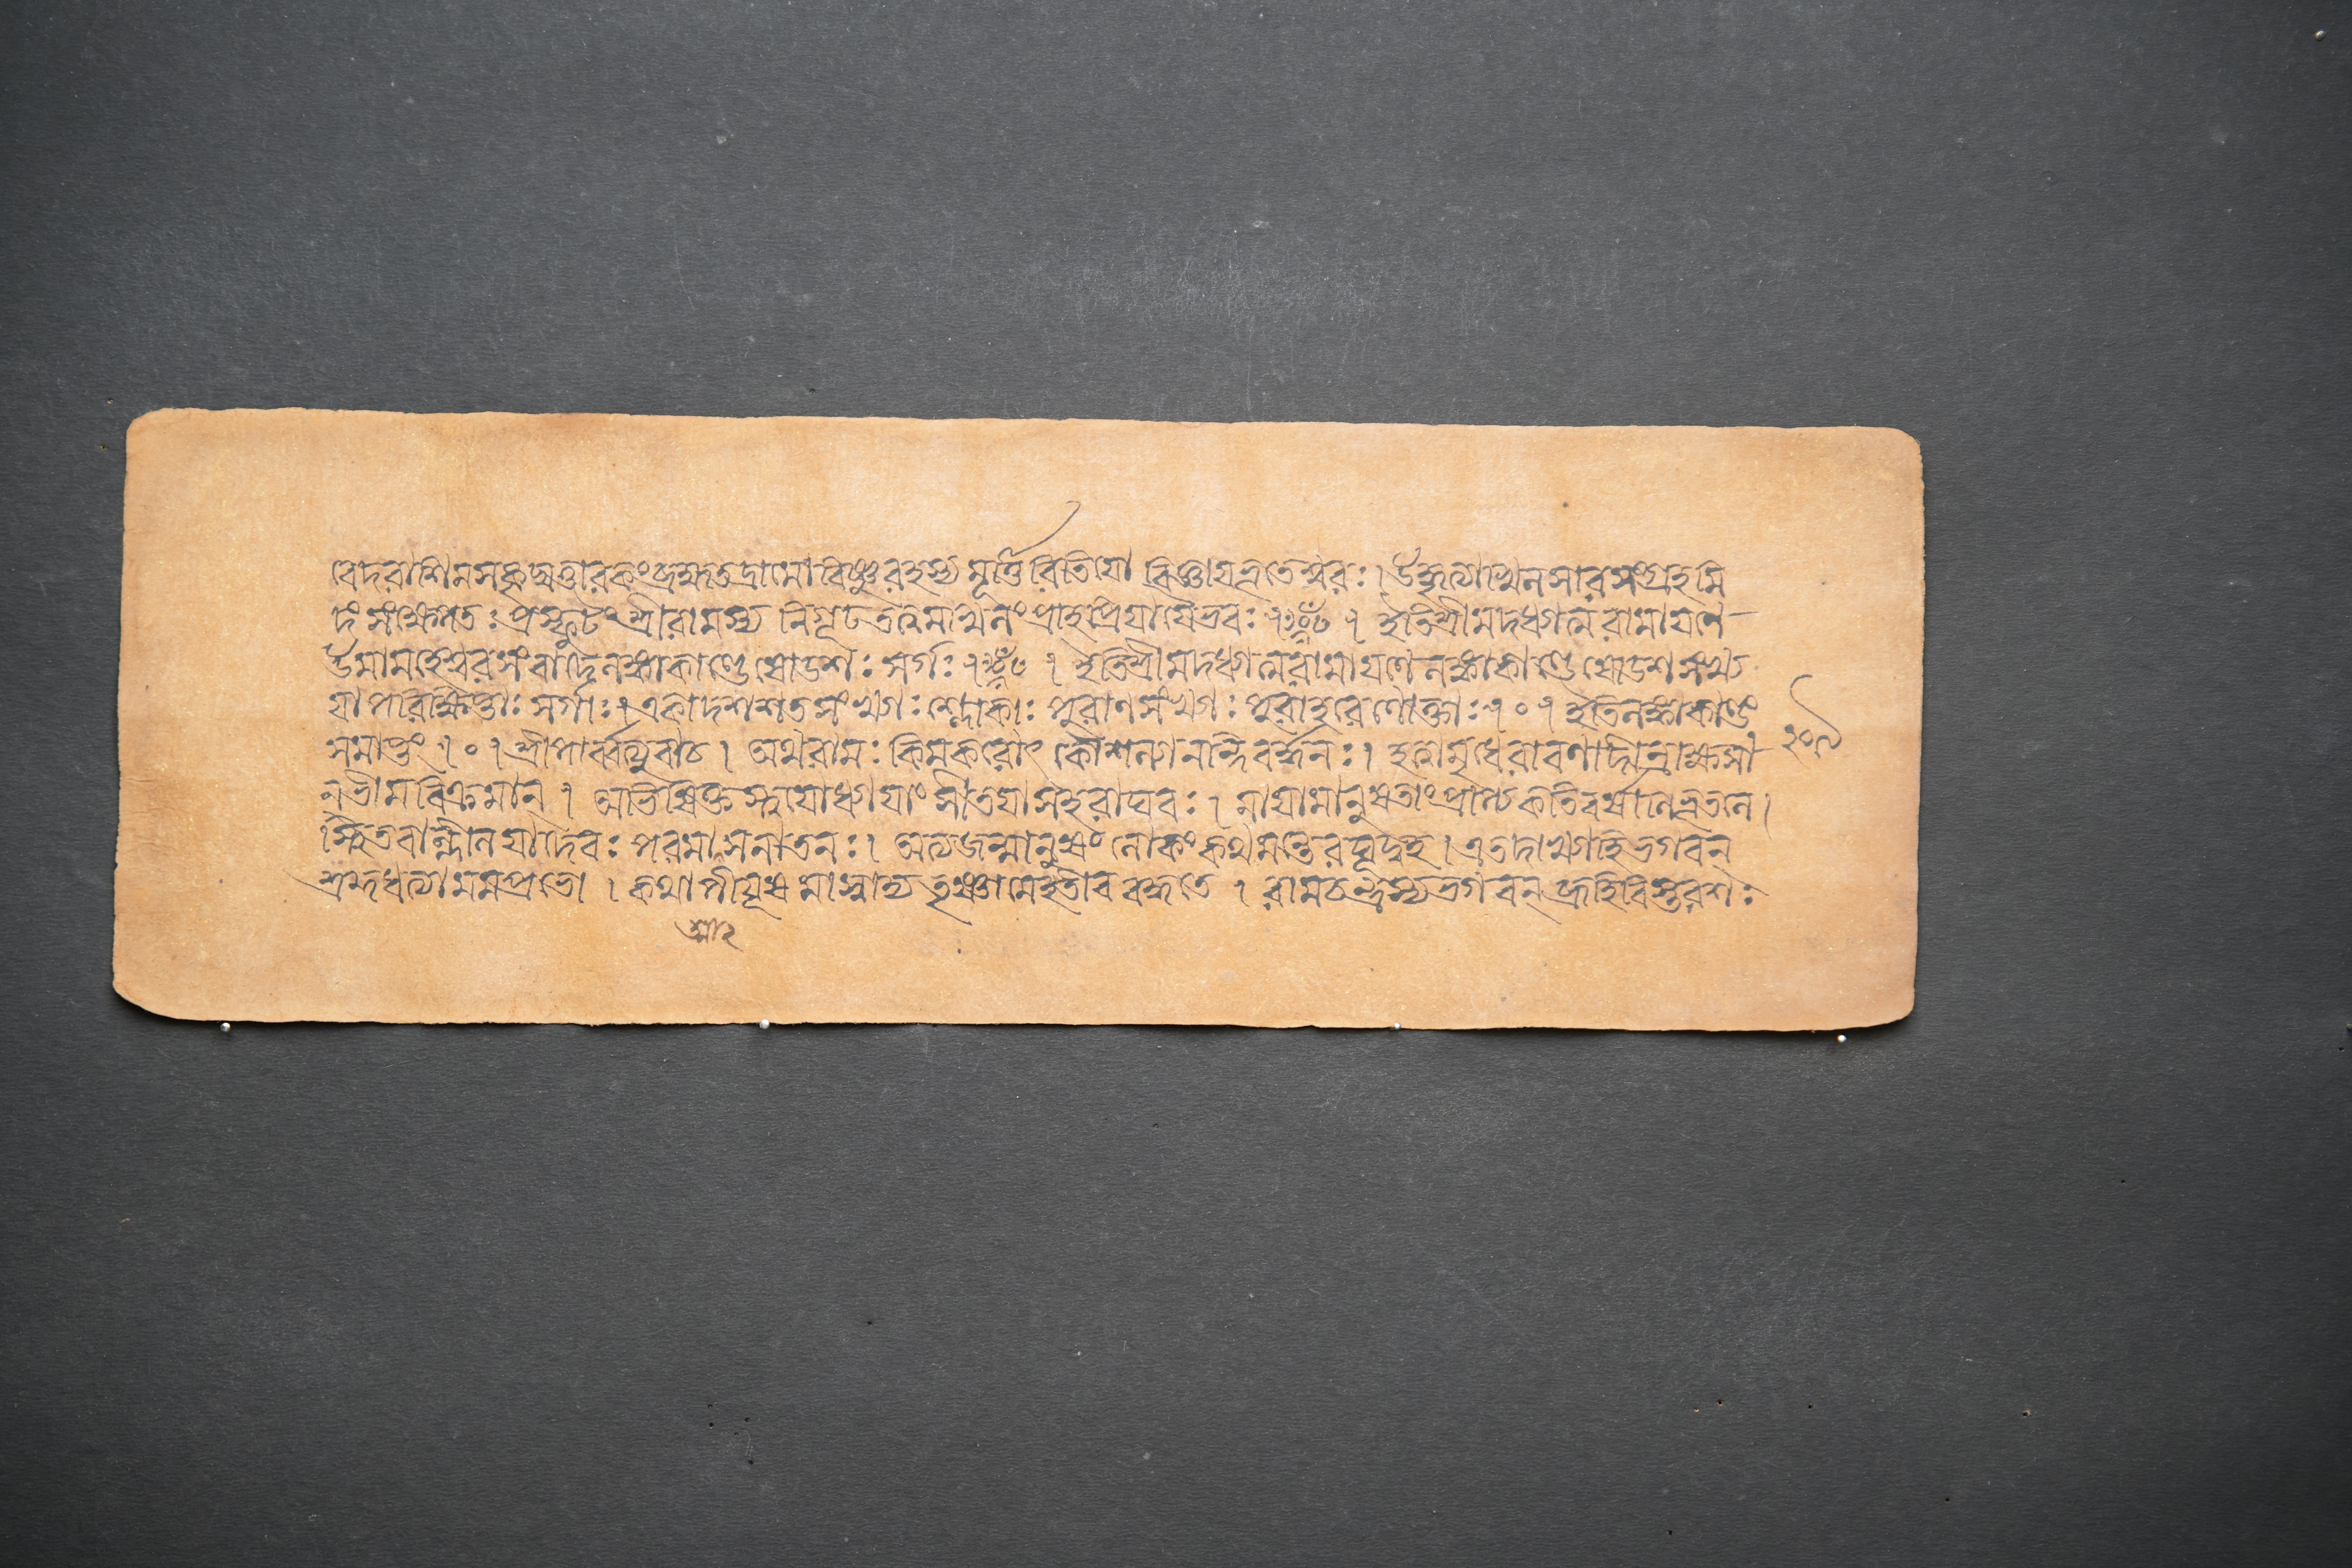 বেদরাশিমসকৃদ্যত্তারকংব্রহ্মতদ্রামোবিষ্ণুরহস্য মূর্ত্তিরিতিযো বিজ্ঞাযভূতেশ্বরঃ। উদ্ধৃত্যাখিলসারসংগ্রহমি
দং সংক্ষেপতঃ প্রস্ফুটং শ্রীরামস্য নিগূঢতত্ত্বমখিলং প্রাহপ্রিযাযৈভবঃ ৷ ৷ ইতিশ্রীমদধ্যাত্মরামাযণে
উমামহেশ্বরসংবাদেলঙ্কাকাণ্ডে ষোডশঃ সর্গঃ ৷ ৷ ইতিশ্রীমদধ্যাত্মরামাযণেলঙ্কাকাণ্ডেষোডশসংখ্য
যা পরিক্ষিপ্তাঃ সর্গাঃ ৷ একাদশশতসংখ্যাঃ শ্লোকাঃ পুরাণসংখ্যাঃ পুরাহরেণোক্তাঃ ৷ ০ ৷ ইতিলঙ্কাকাণ্ডং
সমাপ্তং ৷ ০ ৷ শ্রীপার্ব্বত্যুবাচ। অথরামঃ কিমকরোৎ কৌশল্যানন্দিবর্দ্ধনঃ। হত্বামৃধেরাবণাদীন্রাক্ষসা ২০৯
ন্ভীমবিক্রমান্ ৷ অভিষিক্তস্ত্বযোধ্যাযাং সীতযাসহরাঘবঃ ৷ মাযামানুষতাংপ্রাপ্যকতিবর্ষাণিভূতলে।
স্থিতবান্লীলযাদেবঃ পরমাত্মাসনাতনঃ। অত্যজন্মানুষং লোকং কথমন্তেরঘূদ্বহ। এতদাখ্যাহিভগবন্
শ্রদ্দধত্যামমপ্রভো । কথাপীযূষমাস্বাদ্য তৃষ্ণামেহতীব বর্দ্ধতে ৷ রামচন্দ্রস্যভগবন্ ব্রূহিবিস্তরশঃ